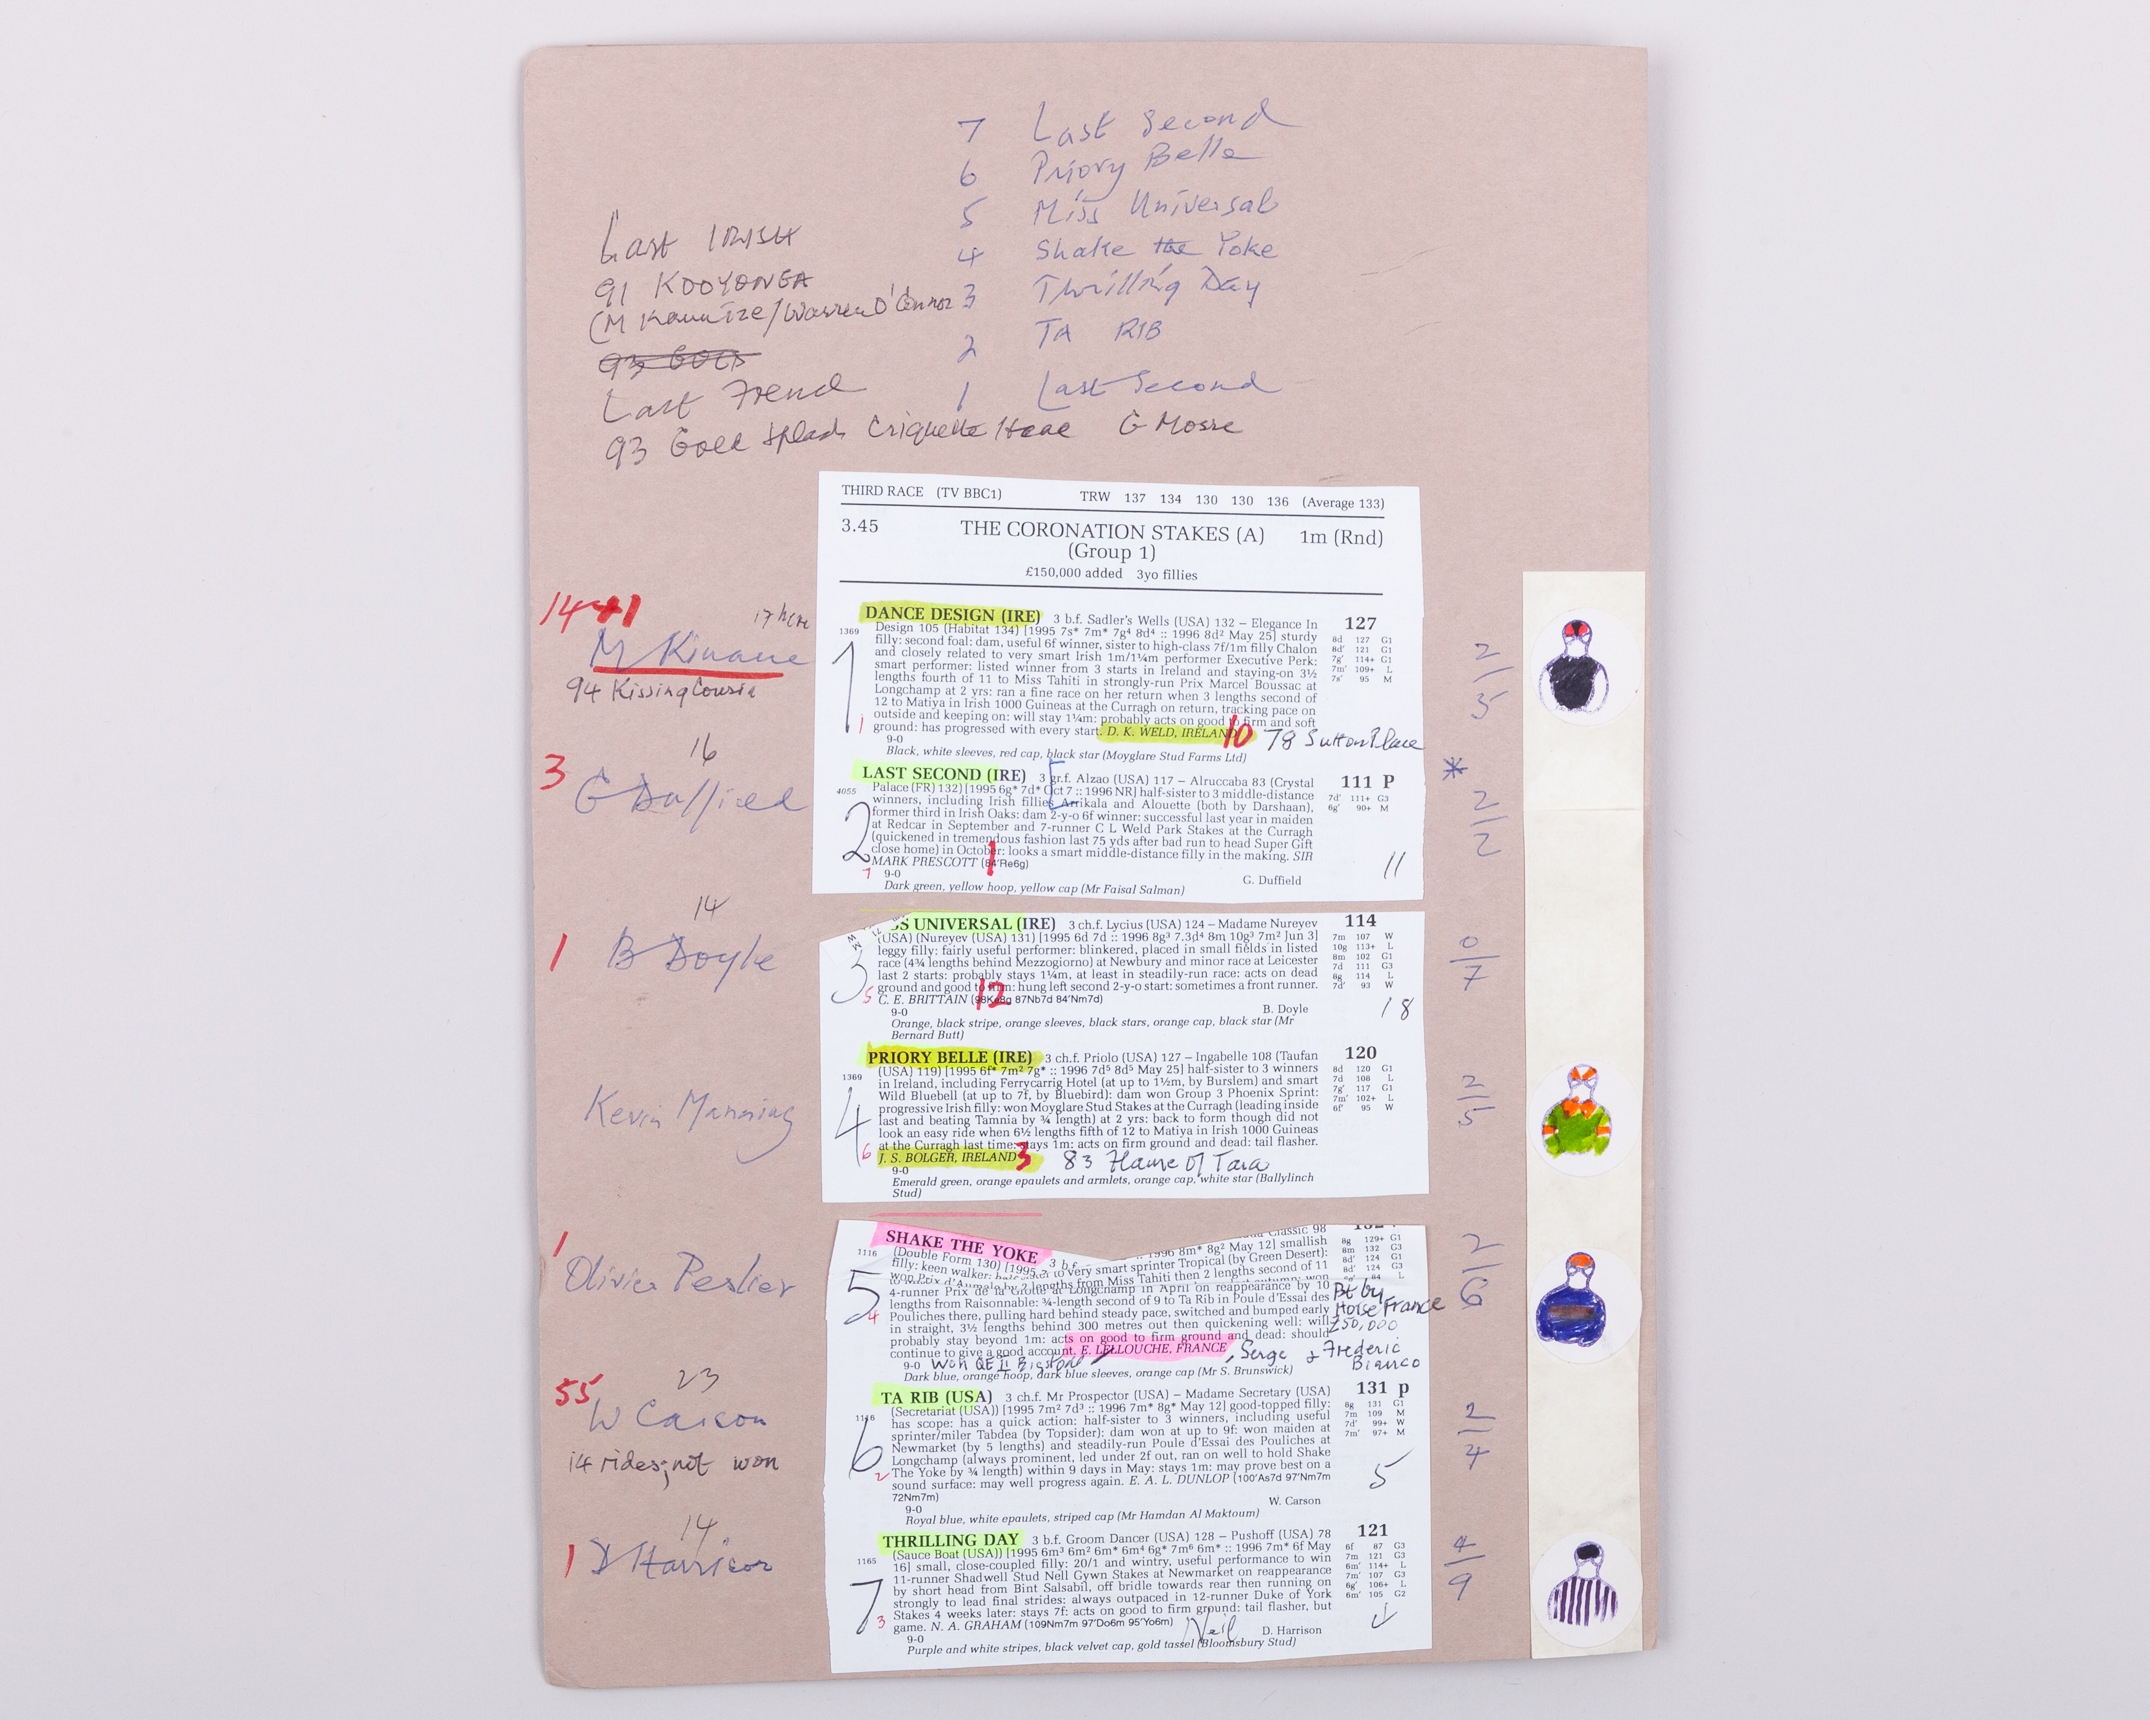 7 Last Second
6 Priory Belle
5 Miss Universal
4 Shake the Yoke
3 Thrilling Day
2 TA RIB
1 Last Second
Last IRISH
91 KOOYONGA
(M Kauntze/Warren O'Connor
93 GOLD
Last French
93 Gold Splash Criquette Head G Mosse
THIRD RACE (TV BBC1) TRW 137 134 130 130 136 (Average 133)
3.45 THE CORONATION STAKES (A) 1m (Rnd)
(Group 1)
£150,000 added 3yo fillies
14 1
M Kinane
94 Kissing Cousin
DANCE DESIGN (IRE) 3 b.f. Sadler's Wells (USA) 132 – Elegance In 127
1369 Design 105 (Habitat 134) [1995 7s* 7m* 7g⁴ 8d⁴ :: 1996 8d² May 25] sturdy 8d 127 G1
filly: second foal: dam, useful 6f winner, sister to high-class 7f/1m filly Chalon 8d' 121 G1
and closely related to very smart Irish 1m/1¼m performer Executive Perk: 7g' 114+ G1
smart performer: listed winner from 3 starts in Ireland and staying-on 3½ 7m' 109+ L
lengths fourth of 11 to Miss Tahiti in strongly-run Prix Marcel Boussac at 7s' 95 M
Longchamp at 2 yrs: ran a fine race on her return when 3 lengths second of
12 to Matiya in Irish 1000 Guineas at the Curragh on return, tracking pace on
outside and keeping on: will stay 1¼m: probably acts on good to firm and soft
ground: has progressed with every start. D. K. WELD, IRELAND 10 78 Sutton Place
9-0
Black, white sleeves, red cap, black star (Moyglare Stud Farms Ltd)
1
1
2/5
3
16
G Duffield
LAST SECOND (IRE) 3 gr.f. Alzao (USA) 117 – Alruccaba 83 (Crystal 111 P
4055 Palace (FR) 132) [1995 6g* 7d* Oct 7 :: 1996 NR] half-sister to 3 middle-distance 7d' 111+ G3
winners, including Irish fillies Arrikala and Alouette (both by Darshaan), 6g' 90+ M
former third in Irish Oaks: dam 2-y-o 6f winner: successful last year in maiden
at Redcar in September and 7-runner C L Weld Park Stakes at the Curragh
(quickened in tremendous fashion last 75 yds after bad run to head Super Gift
close home) in October: looks a smart middle-distance filly in the making. SIR
MARK PRESCOTT (84'Re6g) 1 11
9-0 G. Duffield
Dark green, yellow hoop, yellow cap (Mr Faisal Salman)
2
7
* 2/2
1
14
B Doyle
SS UNIVERSAL (IRE) 3 ch.f. Lycius (USA) 124 – Madame Nureyev 114
(USA) (Nureyev (USA) 131) [1995 6d 7d :: 1996 8g³ 7.3d⁴ 8m 10g³ 7m² Jun 3] 7m 107 W
leggy filly: fairly useful performer: blinkered, placed in small fields in listed 10g 113+ L
race (4¾ lengths behind Mezzogiorno) at Newbury and minor race at Leicester 8m 102 G1
last 2 starts: probably stays 1¼m, at least in steadily-run race: acts on dead 7d 111 G3
ground and good to firm: hung left second 2-y-o start: sometimes a front runner. 8g 114 L
C. E. BRITTAIN (98Ke8g 87Nb7d 84'Nm7d) 12 7d' 93 W
9-0 B. Doyle 18
Orange, black stripe, orange sleeves, black stars, orange cap, black star (Mr
Bernard Butt)
3
5
0/7
Kevin Manning
PRIORY BELLE (IRE) 3 ch.f. Priolo (USA) 127 – Ingabelle 108 (Taufan 120
1369 (USA) 119) [1995 6f* 7m² 7g* :: 1996 7d⁵ 8d⁵ May 25] half-sister to 3 winners 8d 120 G1
in Ireland, including Ferrycarrig Hotel (at up to 1½m, by Burslem) and smart 7d 108 L
Wild Bluebell (at up to 7f, by Bluebird): dam won Group 3 Phoenix Sprint: 7g' 117 G1
progressive Irish filly: won Moyglare Stud Stakes at the Curragh (leading inside 7m' 102+ L
last and beating Tamnia by ¾ length) at 2 yrs: back to form though did not 6f' 95 W
look an easy ride when 6½ lengths fifth of 12 to Matiya in Irish 1000 Guineas
at the Curragh last time: stays 1m: acts on firm ground and dead: tail flasher.
J. S. BOLGER, IRELAND 3 83 Flame Of Tara
9-0
Emerald green, orange epaulets and armlets, orange cap, white star (Ballylinch
Stud)
4
6
2/5
1
Olivier Peslier
SHAKE THE YOKE 3 b.f. Classic 98
1116 (Double Form 130) [1995 7 :: 1996 8m* 8g² May 12] smallish 8g 129+ G1
filly: keen walker: half-sister to very smart sprinter Tropical (by Green Desert): 8m 132 G3
won Prix d'Aumale by 2 lengths from Miss Tahiti then 2 lengths second of 11 8d' 124 G1
4-runner Prix de la Grotte at Longchamp in April on reappearance by 10 8d' 124 G3
lengths from Raisonnable: ¾-length second of 9 to Ta Rib in Poule d'Essai des Bt by
Pouliches there, pulling hard behind steady pace, switched and bumped early Horse France
in straight, 3½ lengths behind 300 metres out then quickening well: will 250,000
probably stay beyond 1m: acts on good to firm ground and dead: should
continue to give a good account. E. LELLOUCHE, FRANCE, Serge & Frederic
9-0 Won QE II Bigstone Bianco
Dark blue, orange hoop, dark blue sleeves, orange cap (Mr S. Brunswick)
5
4
2/6
55
23
W Carson
14 rides, not won
TA RIB (USA) 3 ch.f. Mr Prospector (USA) – Madame Secretary (USA) 131 p
1116 (Secretariat (USA)) [1995 7m² 7d³ :: 1996 7m* 8g* May 12] good-topped filly: 8g 131 G1
has scope: has a quick action: half-sister to 3 winners, including useful 7m 109 M
sprinter/miler Tabdea (by Topsider): dam won at up to 9f: won maiden at 7d' 99+ W
Newmarket (by 5 lengths) and steadily-run Poule d'Essai des Pouliches at 7m' 97+ M
Longchamp (always prominent, led under 2f out, ran on well to hold Shake
The Yoke by ¾ length) within 9 days in May: stays 1m: may prove best on a
sound surface: may well progress again. E. A. L. DUNLOP (100'As7d 97'Nm7m 5
72Nm7m) W. Carson
9-0
Royal blue, white epaulets, striped cap (Mr Hamdan Al Maktoum)
6
2
2/4
1
14
D Harrison
THRILLING DAY 3 b.f. Groom Dancer (USA) 128 – Pushoff (USA) 78 121
1165 (Sauce Boat (USA)) [1995 6m³ 6m² 6m* 6m⁴ 6g* 7m⁶ 6m* :: 1996 7m* 6f May 6f 87 G3
16] small, close-coupled filly: 20/1 and wintry, useful performance to win 7m 121 G3
11-runner Shadwell Stud Nell Gwyn Stakes at Newmarket on reappearance 6m' 114+ L
by short head from Bint Salsabil, off bridle towards rear then running on 7m' 107 G3
strongly to lead final strides: always outpaced in 12-runner Duke of York 6g' 106+ L
Stakes 4 weeks later: stays 7f: acts on good to firm ground: tail flasher, but 6m' 105 G2
game. N. A. GRAHAM (109Nm7m 97'Do6m 95'Yo6m) Neil D. Harrison
9-0
Purple and white stripes, black velvet cap, gold tassel (Bloomsbury Stud)
7
3
4/9